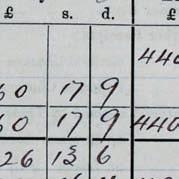 £ s. d. £
440
60 17 9
60 17 9 440
26 6